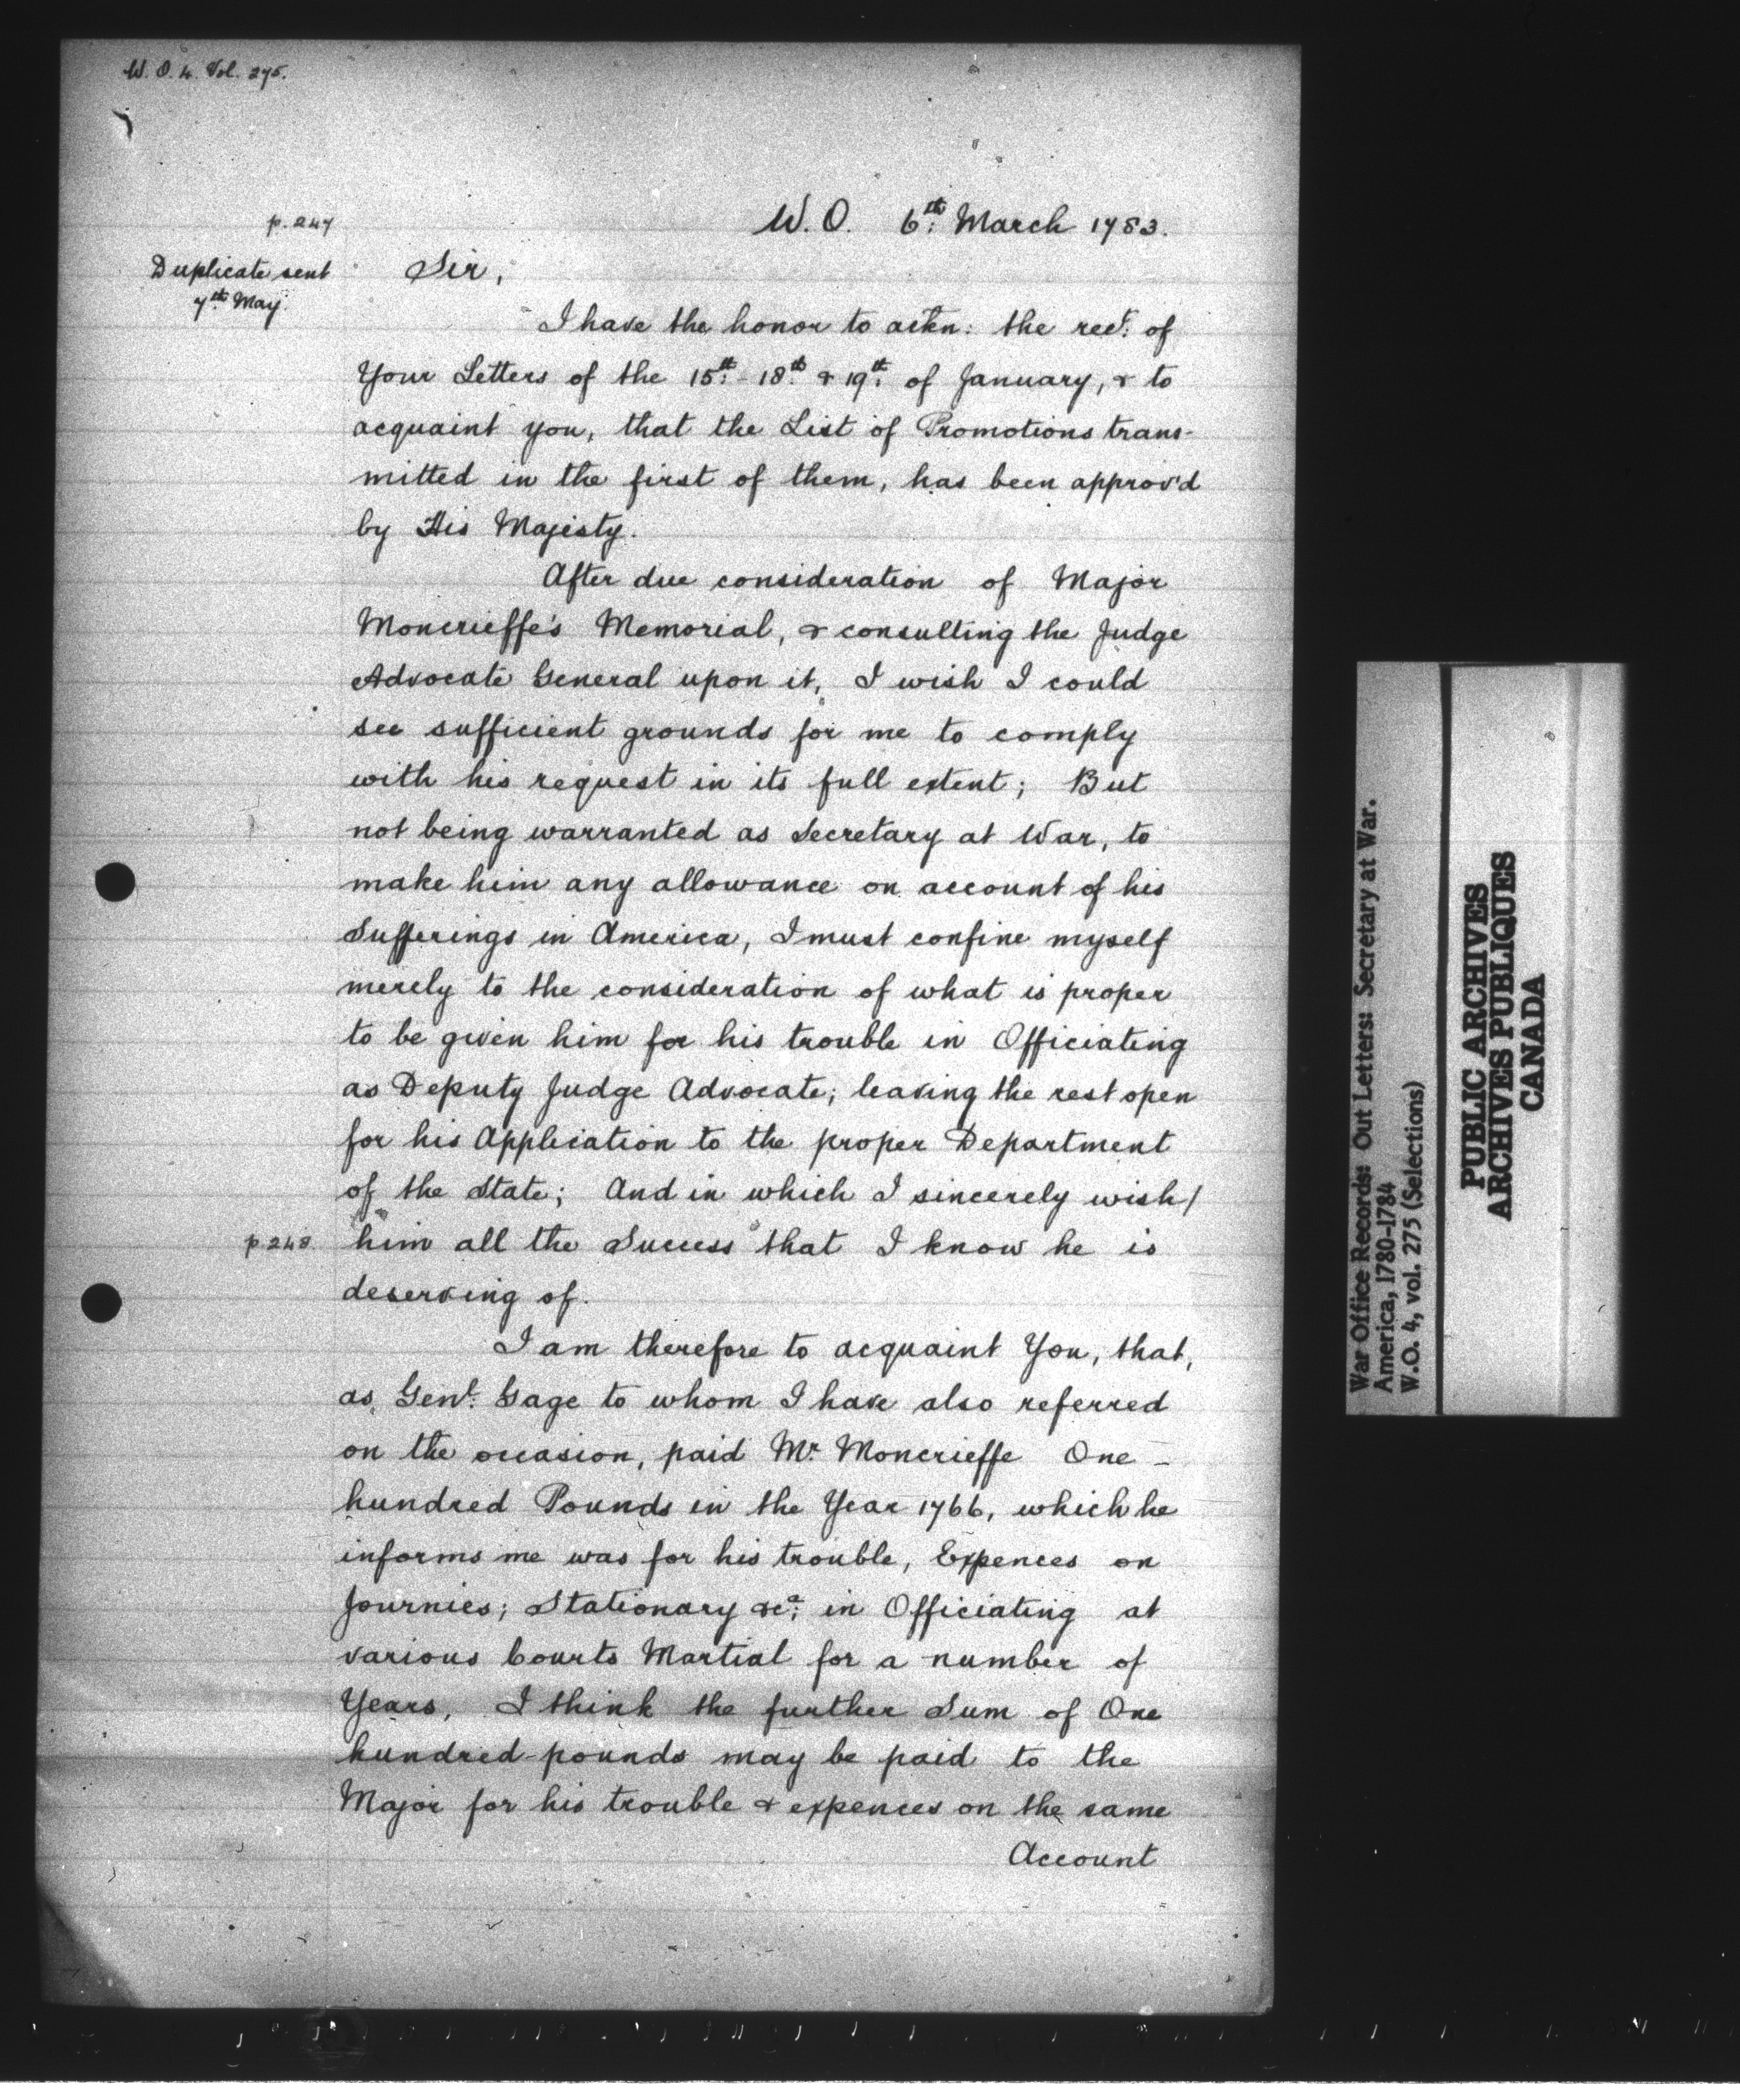 W. O. 4. Vol. 275.
W. O. 6th: March 1783.
p. 247
Duplicate sent
7th May.
Sir,
I have the honor to ackn: the rect: of
Your Letters of the 15th:- 18th: & 19th: of January, & to
acquaint you, that the List of Promotions trans-
mitted in the first of them, has been approv'd
by His Majesty.
After due consideration of Major
Moncrieffe's Memorial, & consulting the Judge
Advocate General upon it, I wish I could
see sufficient grounds for me to comply
with his request in its full extent; But
not being warranted as Secretary at War, to
make him any allowance on account of his
Sufferings in America, I must confine myself
merely to the consideration of what is proper
to be given him for his trouble in Officiating
as Deputy Judge Advocate; leaving the rest open
for his Application to the proper Department
of the State; And in which I sincerely wish/
p. 248. him all the Success that I know he is
deserving of.
I am therefore to acquaint You, that,
as Genl: Gage to whom I have also referred
on the occasion, paid Mr. Moncrieffe One -
hundred Pounds in the Year 1766, which he
informs me was for his trouble, Expences on
Journies; Stationary &ca: in Officiating at
various Courts Martial for a number of
Years, I think the further Sum of One
hundred-pounds may be paid to the
Major for his trouble & expences on the same
Account
War Office Records: Out Letters: Secretary at War.
America, 1780-1784
W.O. 4, vol. 275 (Selections)
PUBLIC ARCHIVES
ARCHIVES PUBLIQUES
CANADA